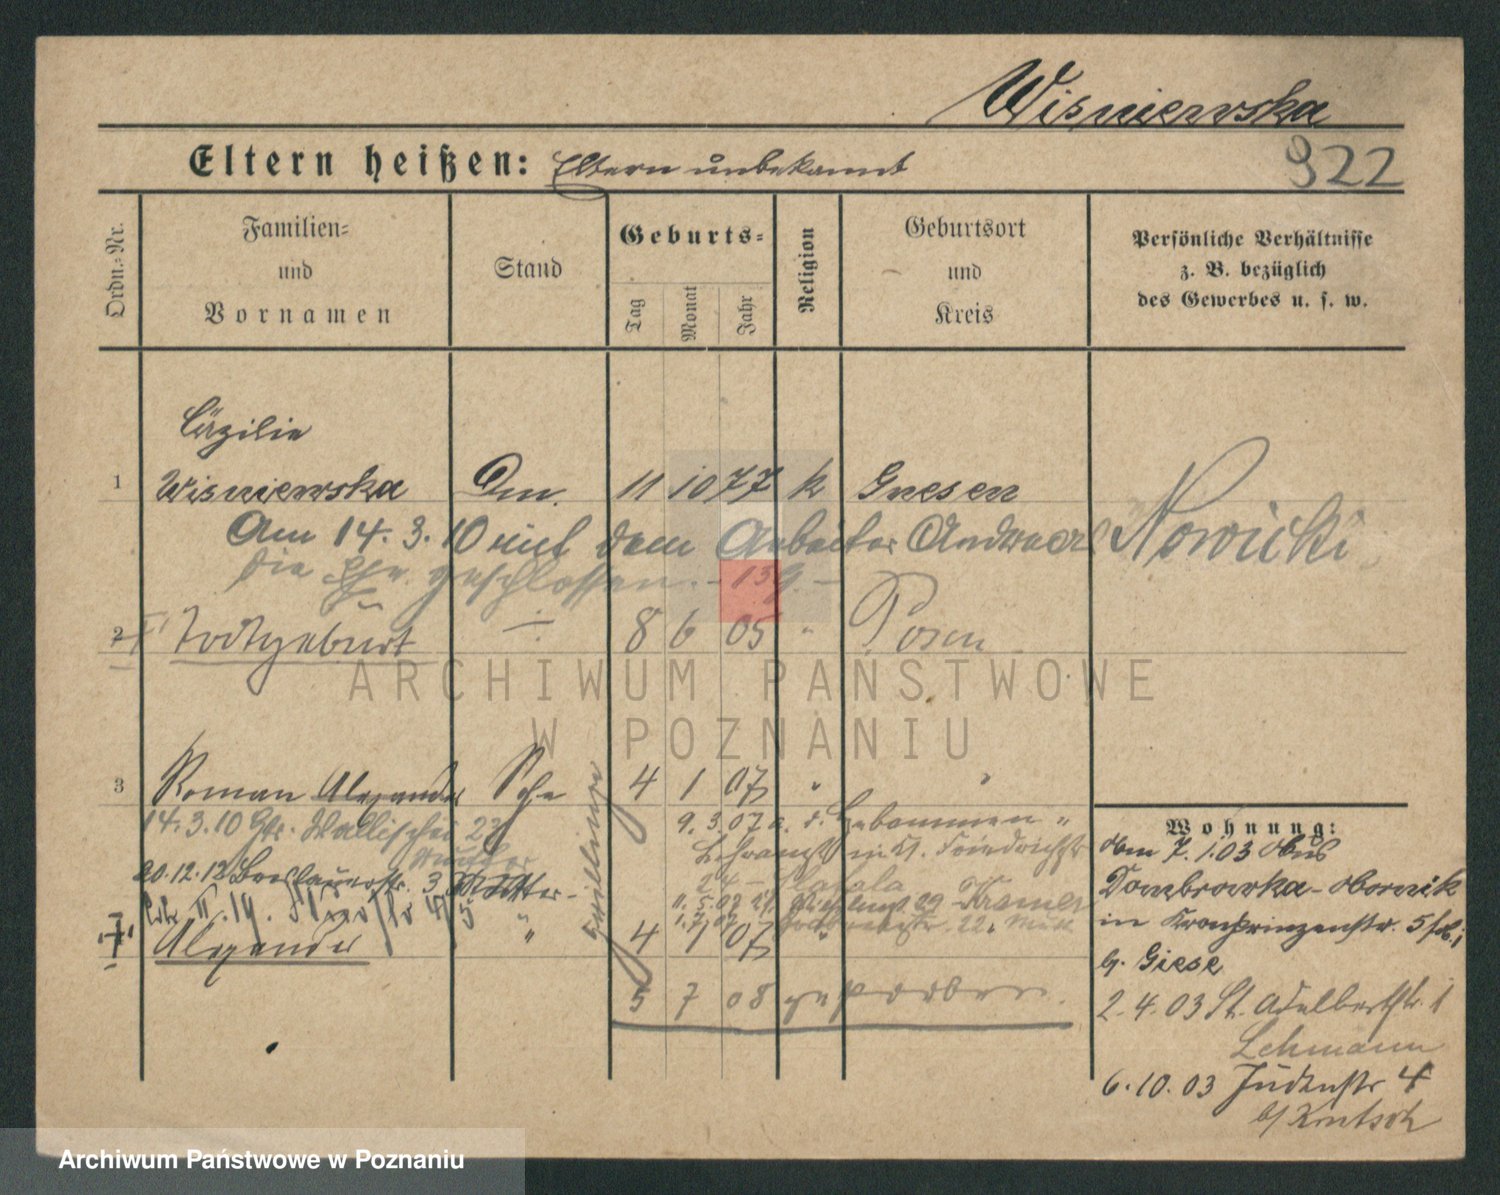 Wisniewska
Eltern heißen: Eltern unbekannt
922
Ordn.-Nr.
Familien-
und
Vornamen
Stand
Geburts-
Tag
Monat
Jahr
Religion
Geburtsort
und
Kreis
Persönliche Verhältnisse
z. B. bezüglich
des Gewerbes u. s. w.
Cäzilie
1 Wisniewska 11 10 77 k Gnesen
Am 14. 3. 10 mit dem Arbeiter Andreas Nowicki
die Ehe geschlossen. - 139. -
2 Todtgeburt - 8 6 05 " Posen
3 Roman Alexander Sohn 4 1 07 " "
14. 3. 10 Gr. Wallischei 22
9. 3. 07 Hebammen "
Friedrichstr
24 -
20. 12. 12 Breslauerstr. 3 Mutter
11. 5. 07 29 Kramer
1. 7. 07 22.
Zwillinge
† Alexander " 4 1 07 "
5 7 08 gestorben.
Wohnung:
Am 7. 1. 03 aus
Dombrowka - Obornik
in Kronprinzenstr. 5
b. Giese
2. 4. 03 St. Adalbertstr. 1
Lehmann
6. 10. 03 Judenstr 4
b/
ARCHIWUM PAŃSTWOWE
W POZNANIU
Archiwum Państwowe w Poznaniu